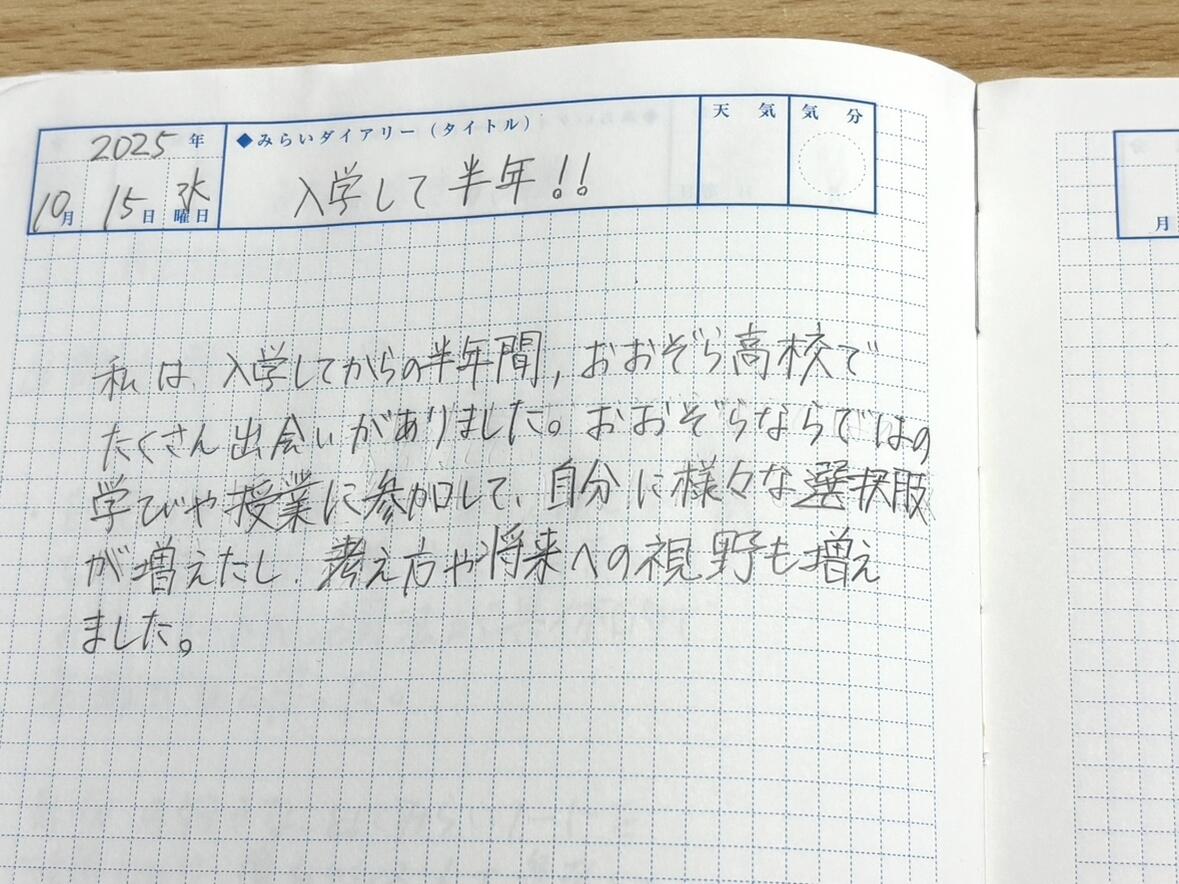 2025年
10月 15日 水曜日
◆みらいダイアリー（タイトル）
入学して半年!!
天気
気分
私は、入学してからの半年間，おおぞら高校で
たくさん出会いがありました。おおぞらならではの
学びや授業に参加して、自分に様々な選択肢
が増えたし、考え方や将来への視野も増え
ました。
月